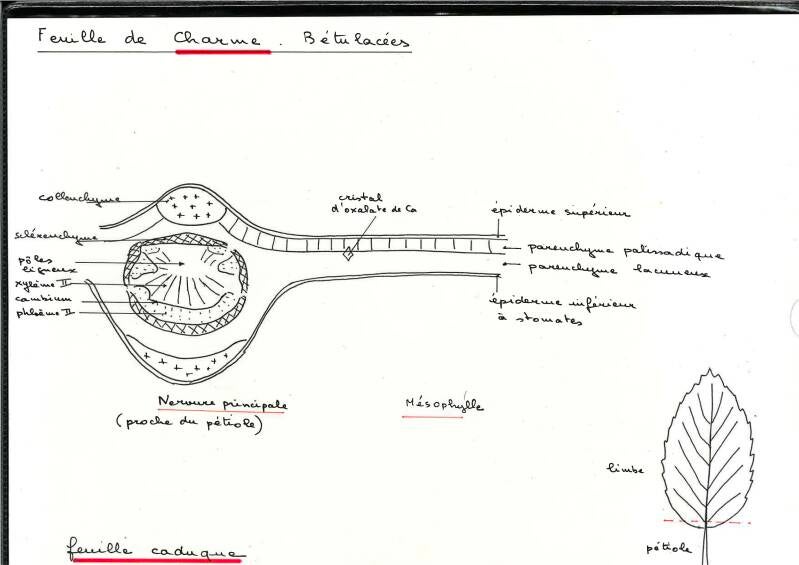 Feuille de Charme. Bétulacées
collenchyme
sclérenchyme
pôles
ligneux
xylème II
cambium
phloème II
cristal
d'oxalate de Ca
épiderme supérieur
parenchyme palissadique
parenchyme lacuneux
épiderme inférieur
à stomates
Nervure principale
(proche du pétiole)
Mésophylle
limbe
pétiole
feuille caduque